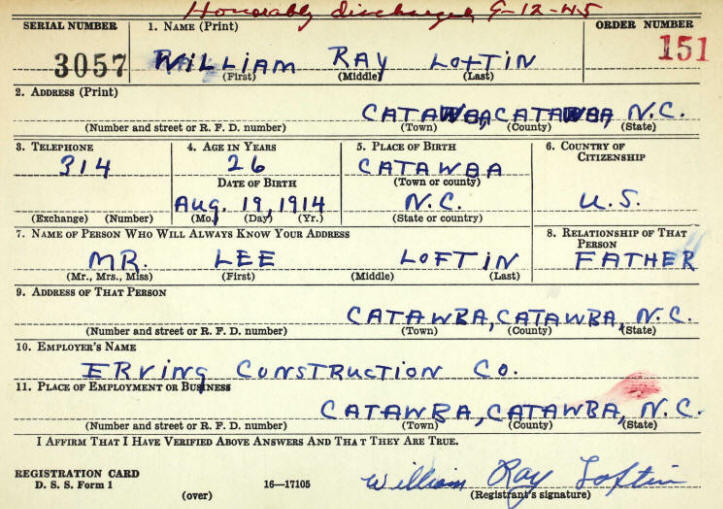 Honorably discharged 9-12-45
SERIAL NUMBER 1. NAME (Print) ORDER NUMBER
3057 WILLIAM RAY LOFTIN 151
(First) (Middle) (Last)
2. ADDRESS (Print)
CATAWBA, CATAWBA, N.C.
(Number and street or R. F. D. number) (Town) (County) (State)
3. TELEPHONE 4. AGE IN YEARS 5. PLACE OF BIRTH 6. COUNTRY OF CITIZENSHIP
314 26 CATAWBA
DATE OF BIRTH (Town or county)
AUG. 19, 1914 N.C. U.S.
(Exchange) (Number) (Mo.) (Day) (Yr.) (State or country)
7. NAME OF PERSON WHO WILL ALWAYS KNOW YOUR ADDRESS 8. RELATIONSHIP OF THAT PERSON
MR. LEE LOFTIN FATHER
(Mr., Mrs., Miss) (First) (Middle) (Last)
9. ADDRESS OF THAT PERSON
CATAWBA, CATAWBA, N.C.
(Number and street or R. F. D. number) (Town) (County) (State)
10. EMPLOYER'S NAME
ERVING CONSTRUCTION CO.
11. PLACE OF EMPLOYMENT OR BUSINESS
CATAWBA, CATAWBA, N.C.
(Number and street or R. F. D. number) (Town) (County) (State)
I AFFIRM THAT I HAVE VERIFIED ABOVE ANSWERS AND THAT THEY ARE TRUE.
REGISTRATION CARD
D. S. S. Form 1 (over) 16—17105 William Ray Loftin
(Registrant's signature)